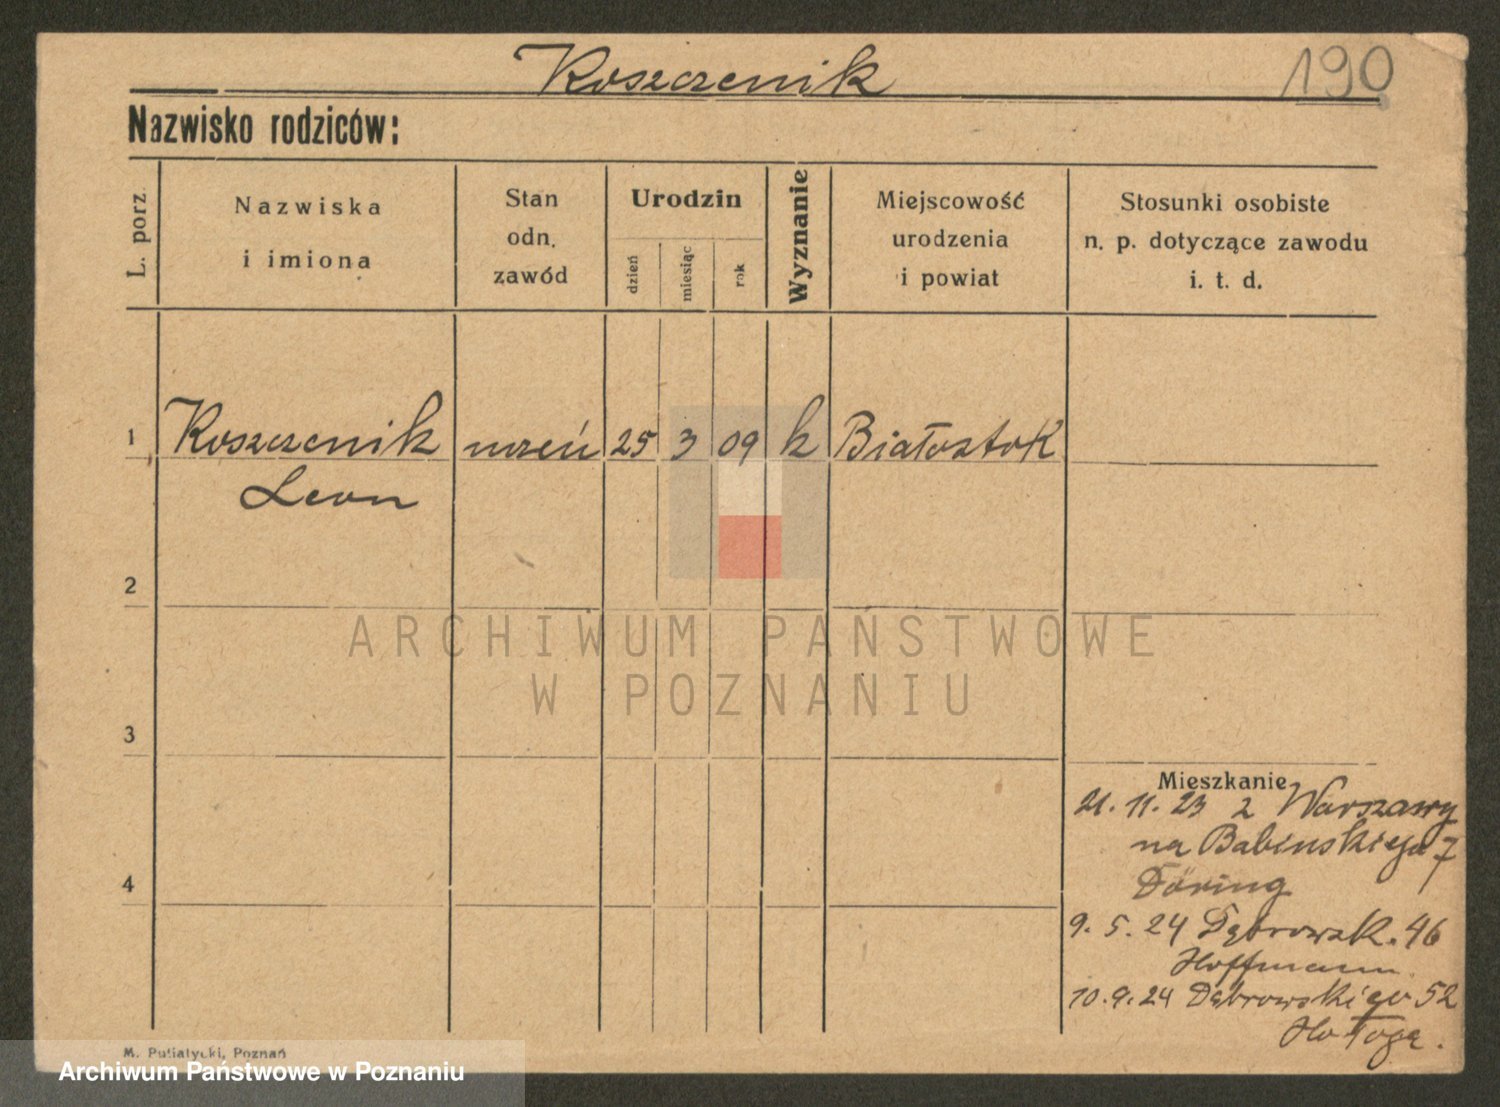 Koszczenik
190
Nazwisko rodziców:
L. porz.
Nazwiska
i imiona
Stan
odn.
zawód
Urodzin
dzień
miesiąc
rok
Wyznanie
Miejscowość
urodzenia
i powiat
Stosunki osobiste
n. p. dotyczące zawodu
i. t. d.
1 Koszczenik uczeń 25 3 09 k Białostok
Leon
2
ARCHIWUM PAŃSTWOWE
W POZNANIU
3
Mieszkanie
21. 11. 23 z Warszawy
na Babinskiego 7
Döring
4
9. 5. 24 Dąbrowsk. 46
Hoffmann
10. 9. 24 Dąbrowskiego 52
Hołoga.
M. Putiatycki, Poznań
Archiwum Państwowe w Poznaniu